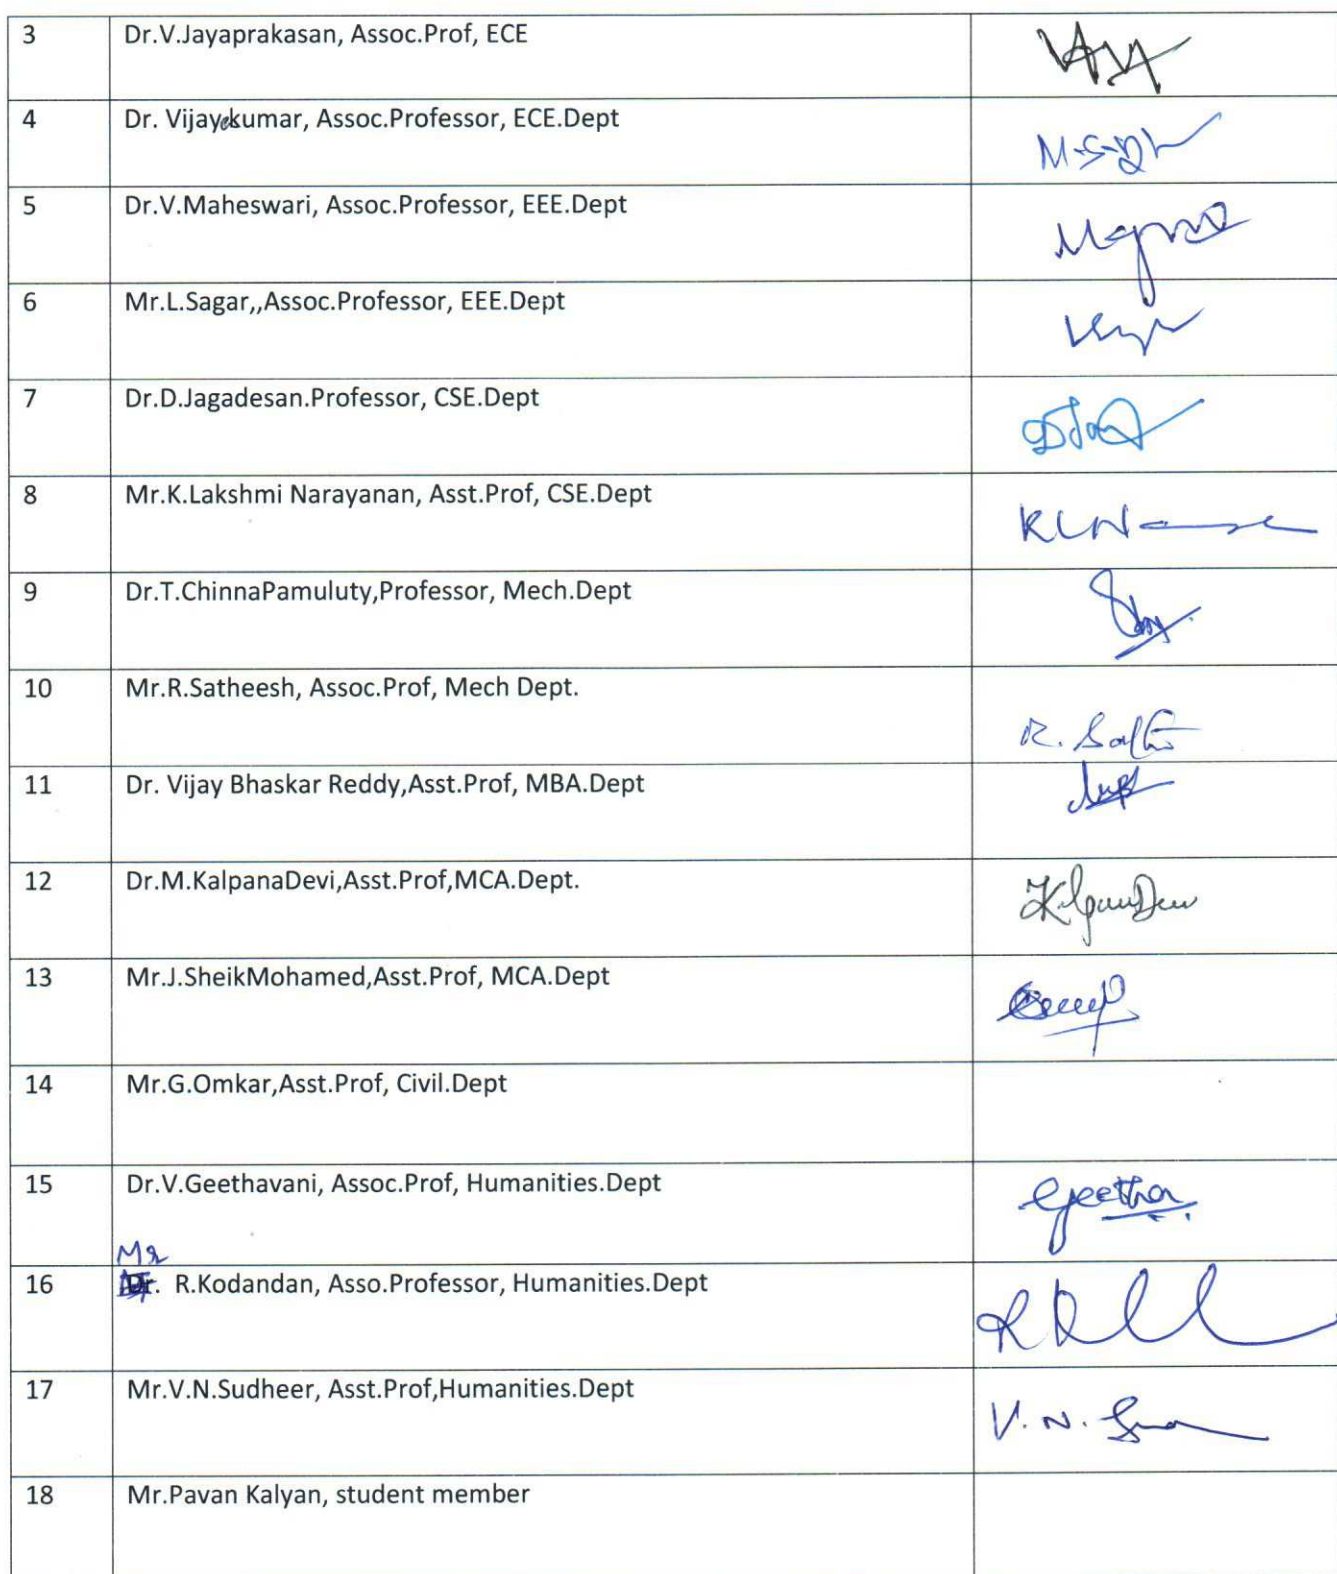 3 Dr.V.Jayaprakasan, Assoc.Prof, ECE
4 Dr. Vijayakumar, Assoc.Professor, ECE.Dept
5 Dr.V.Maheswari, Assoc.Professor, EEE.Dept
6 Mr.L.Sagar,,Assoc.Professor, EEE.Dept
7 Dr.D.Jagadesan.Professor, CSE.Dept
8 Mr.K.Lakshmi Narayanan, Asst.Prof, CSE.Dept
9 Dr.T.ChinnaPamuluty,Professor, Mech.Dept
10 Mr.R.Satheesh, Assoc.Prof, Mech Dept.
11 Dr. Vijay Bhaskar Reddy,Asst.Prof, MBA.Dept
12 Dr.M.KalpanaDevi,Asst.Prof,MCA.Dept.
13 Mr.J.SheikMohamed,Asst.Prof, MCA.Dept
14 Mr.G.Omkar,Asst.Prof, Civil.Dept
15 Dr.V.Geethavani, Assoc.Prof, Humanities.Dept Geetha
Mr
16 Dr. R.Kodandan, Asso.Professor, Humanities.Dept
17 Mr.V.N.Sudheer, Asst.Prof,Humanities.Dept V.N.
18 Mr.Pavan Kalyan, student member